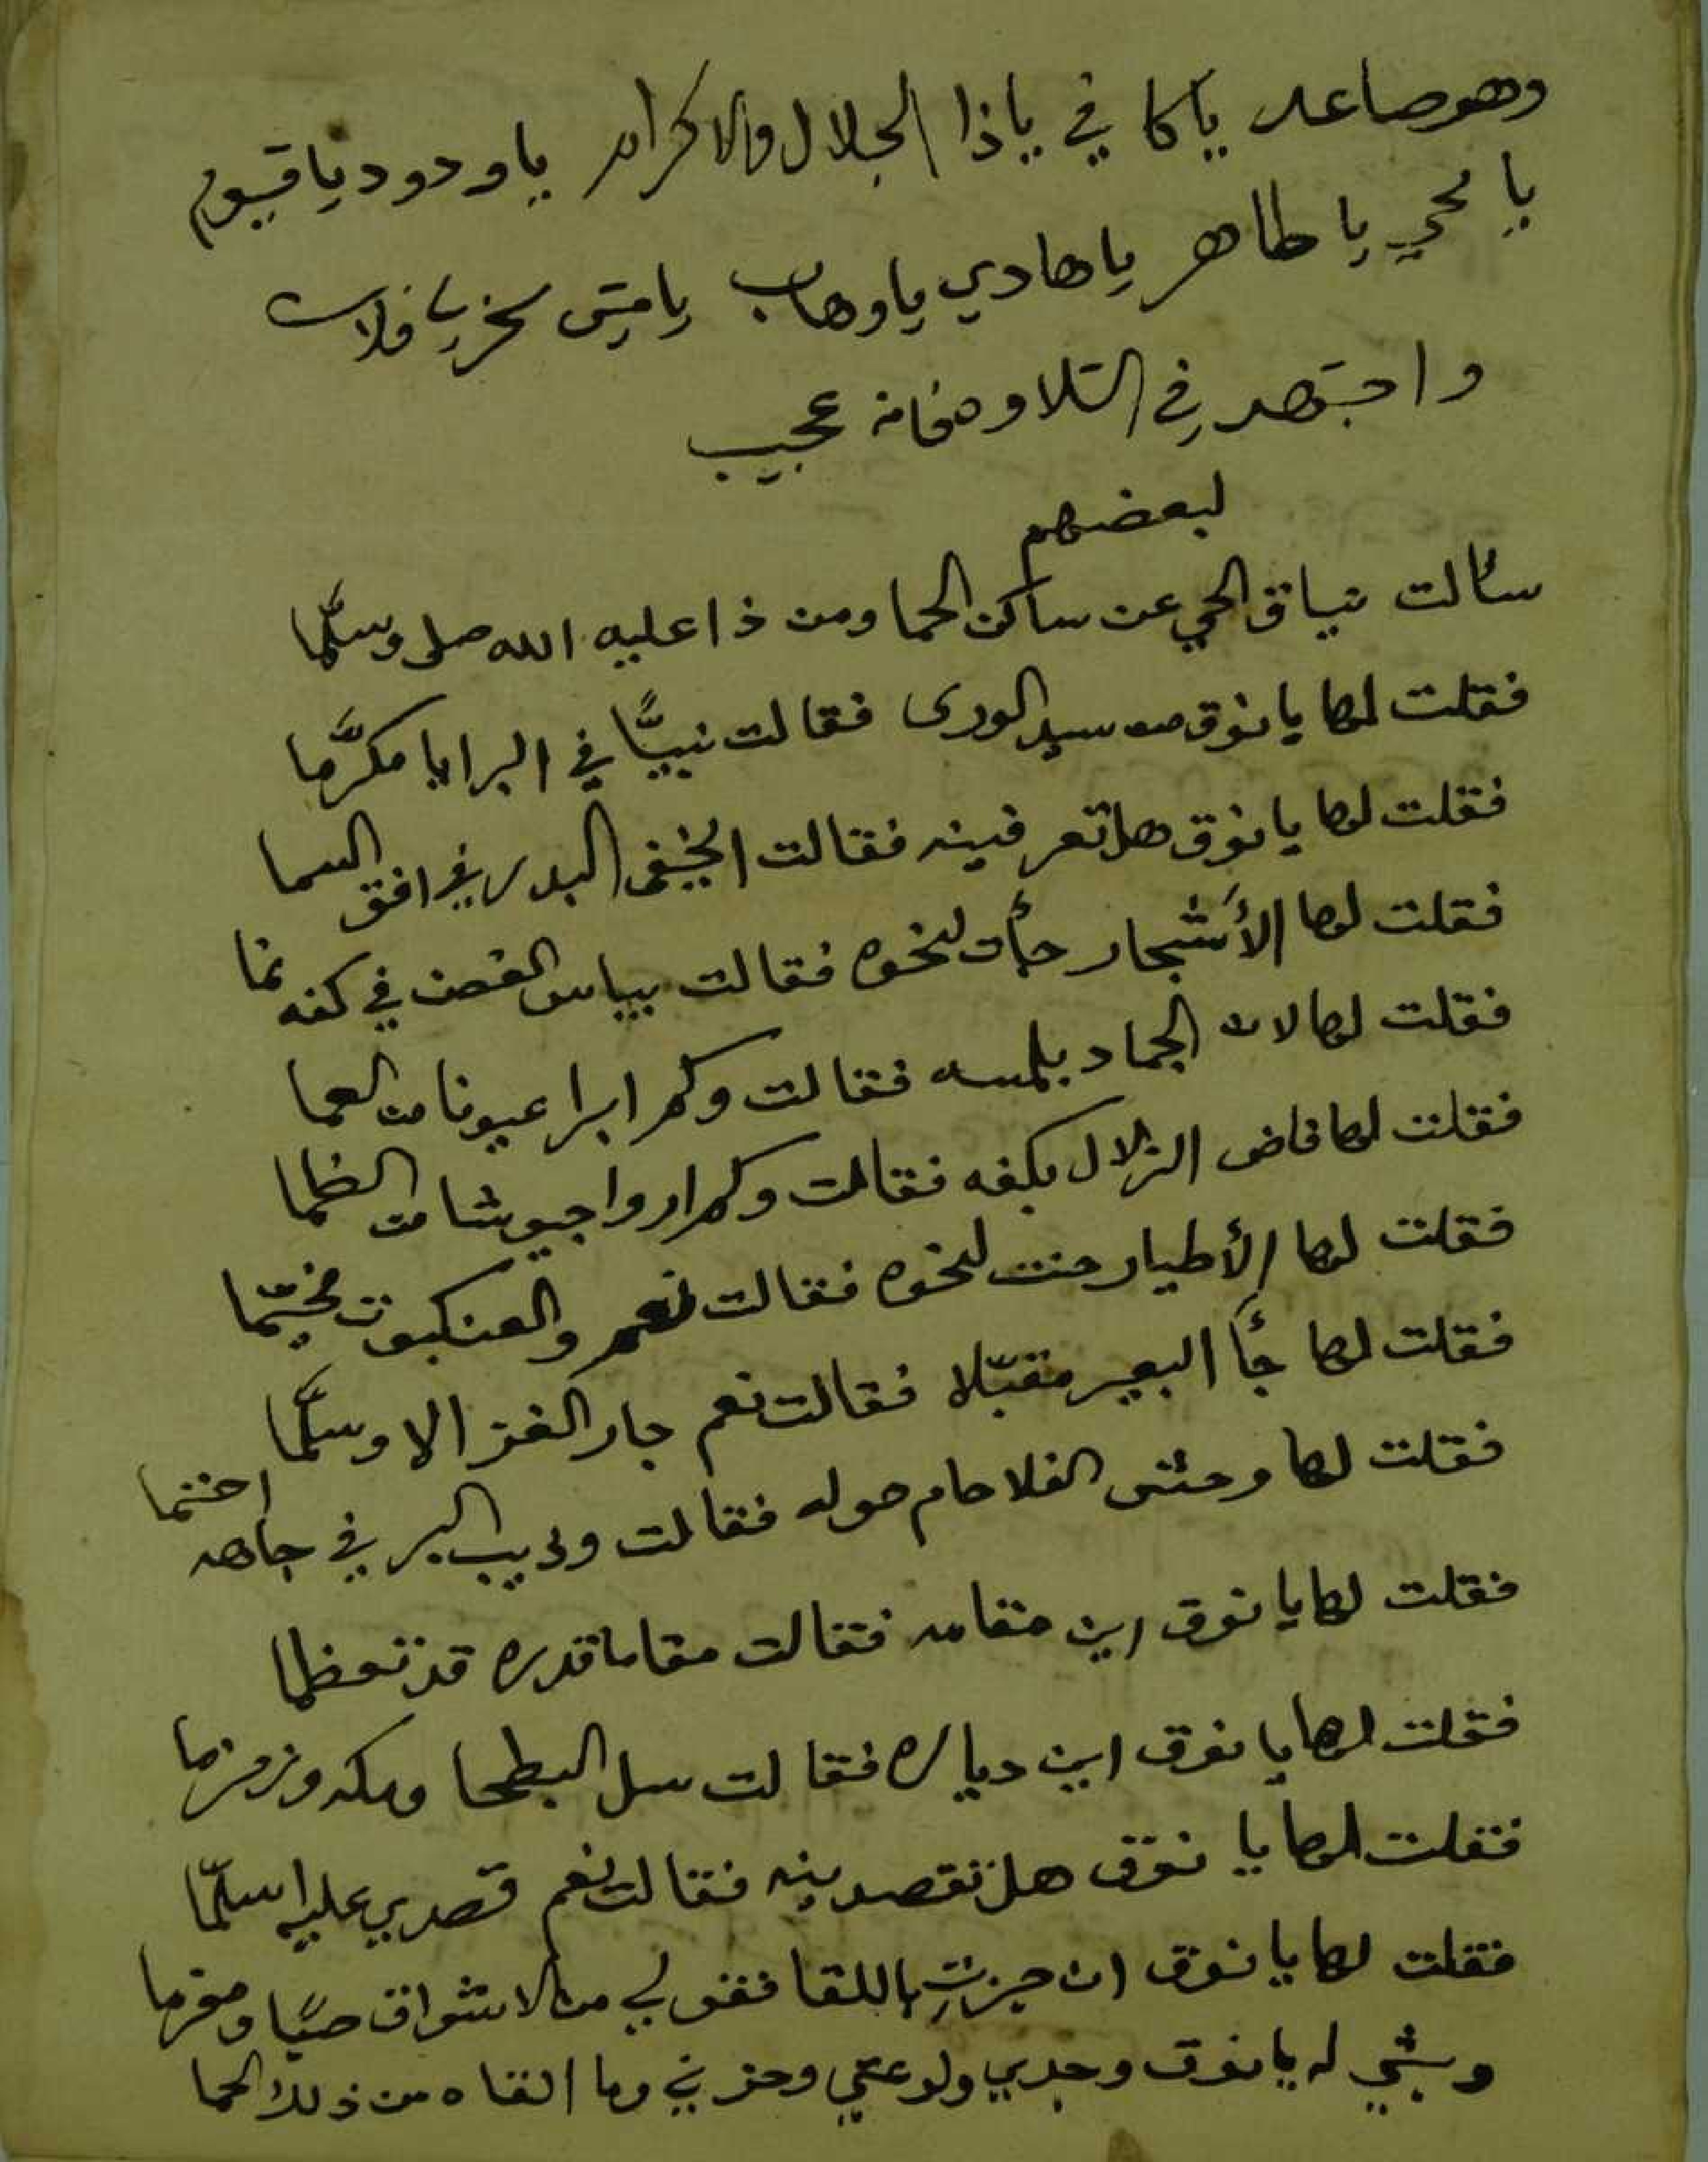 وهو صاعد يا كافي يا ذا الجلال والاكرام يا ودود يا قيوم
يا محيي يا طاهر يا هادي يا وهاب يا سخر يا فلان
واجتهد في التلاوه فانه عجيب
لبعضهم
سألت نياق الحي عن ساكن الحما ومن ذا عليه الله صلى وسلّما
فقلت لها يا نوق من سيد الورى فقالت نبيًّا في البرايا مكرَّما
فقلت لها يا نوق هل تعرفينه فقالت ايخفى البدر في افق السما
فقلت لها الأشجار جأت لنحوه فقالت يباس الغصن في كفه نما
فقلت لها لان الجماد بلمسه فقالت وكم ابرا عيونا من العما
فقلت لها فاض الزلال بكفه فقالت وكم اروا جيوشا من الظما
فقلت لها الأطيار حنت لنحوه فقالت نعم والعنكبوت مخيّما
فقلت لها جأ البعير مقبّلا فقالت نعم جار الغزالا وسلّما
فقلت لها وحش الفلا حام حوله فقالت وذيب البر في جاهه احتما
فقلت لها يا نوق اين مقامه فقالت مقاما قدره قد تعظما
فقلت لها يا نوق اين دياره فقالت سل البطحا ومكه وزمزما
فقلت لها يا نوق هل تقصدينه فقالت نعم قصدي عليه اسلّما
فقلت لها يا نوق ان حزتِ باللقا فقولي من الاشواق صبًا ومغرما
وبثي له يا نوق وجدي ولوعتي وحزني وما القاه من ذلك الحما